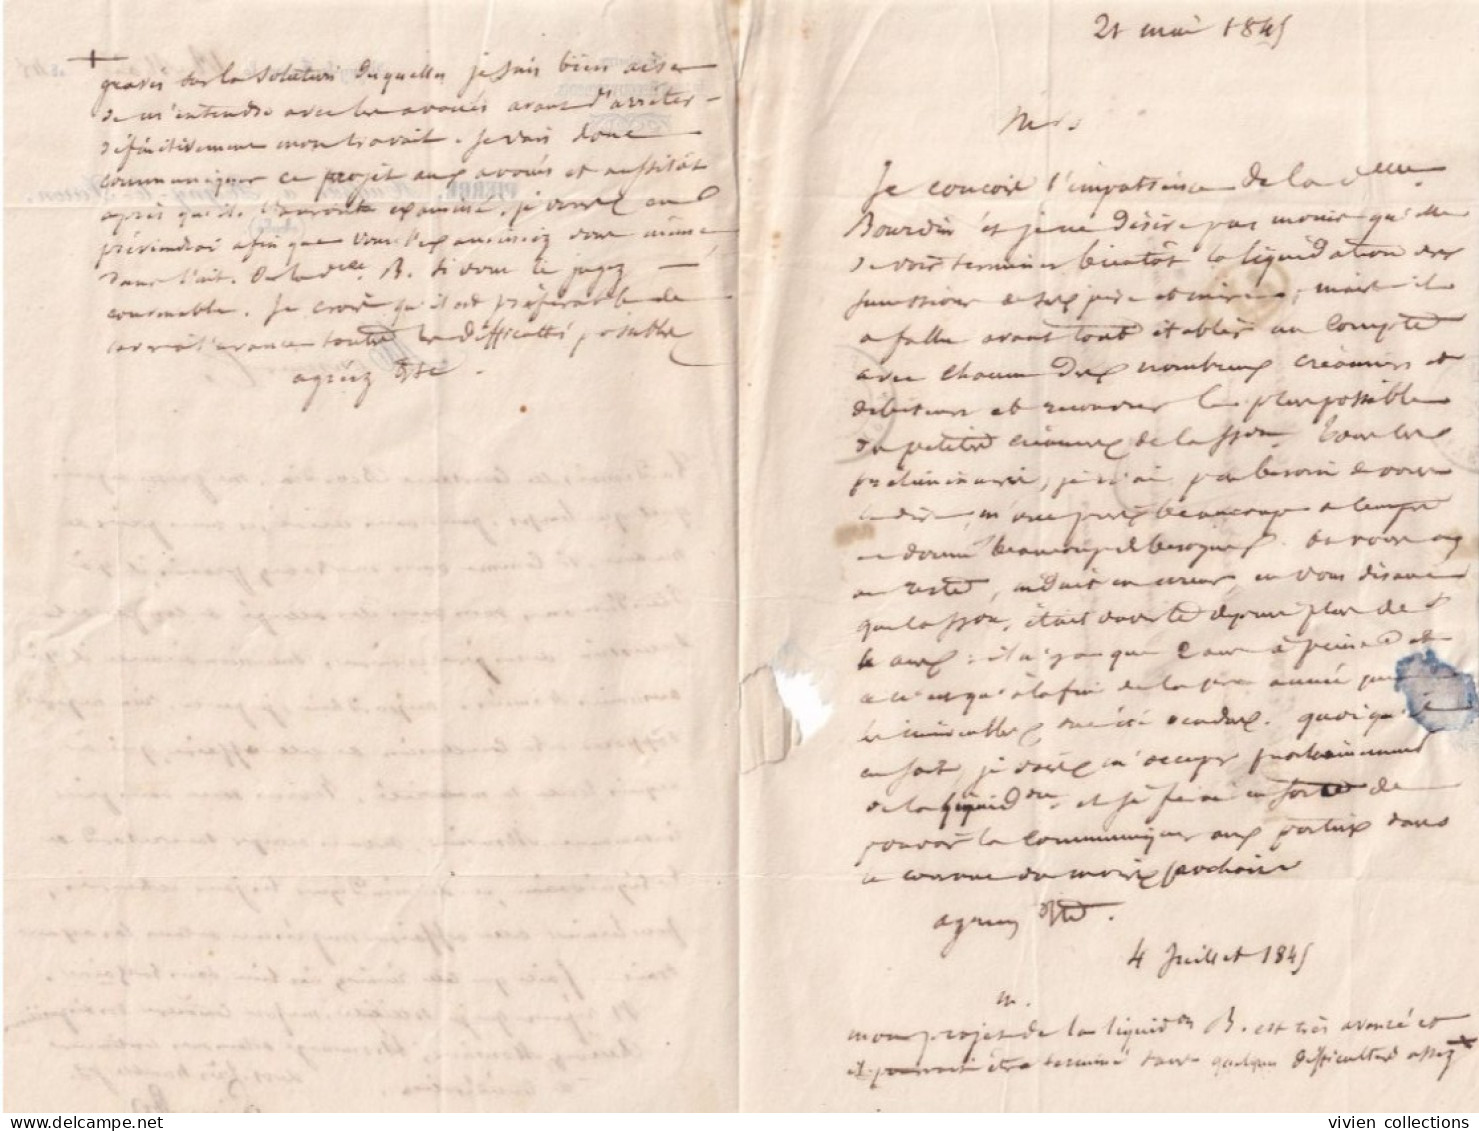 21 mai 1845
Je conçois l'impatience de la Delle
Bourdin et je ne désire pas moins qu'elle
de voir terminer bientôt la liquidation des
successions de ses père et mère, mais il
a fallu avant tout établir un compte
avec chacun des nombreux créanciers et
débiteurs et recouvrer le plus possible
des petites créances de la sson. Tous ces
préliminaires, je n'ai pas besoin de vous
le dire, m'ont pris beaucoup de temps
et donné beaucoup de besogne. On vous a
au reste, induit en erreur, en vous disant
que la sson était ouverte depuis plus de
ans: il n'y a que 2 ans à peine et
ce n'est qu'à la fin de la 1ere année que
les immeubles ont été vendus. Quoiqu'il
en soit, je vais m'occuper prochainement
de la liquidon, et je ferai en sorte de
pouvoir la communiquer aux parties dans
le courant du mois prochain
agréez &te.
4 Juillet 1845
m.
mon projet de la liquidon B. est très avancé et
il pourrait être terminé sans quelques difficultés assez +
+
graves sur la solution desquelles je suis bien aise
de m'entendre avec les avoués avant d'arrêter
définitivement mon travail. Je vais donc
communiquer ce projet aux avoués et aussitôt
après qu'ils l'auront examiné, je vous en
préviendrai afin que vous l'examiniez vous même
dans l'int. de la Delle B. si vous le jugez
convenable. Je crois qu'il est préférable de
lever à l'avance toutes les difficultés possibles
agréez &te.
vivien collections